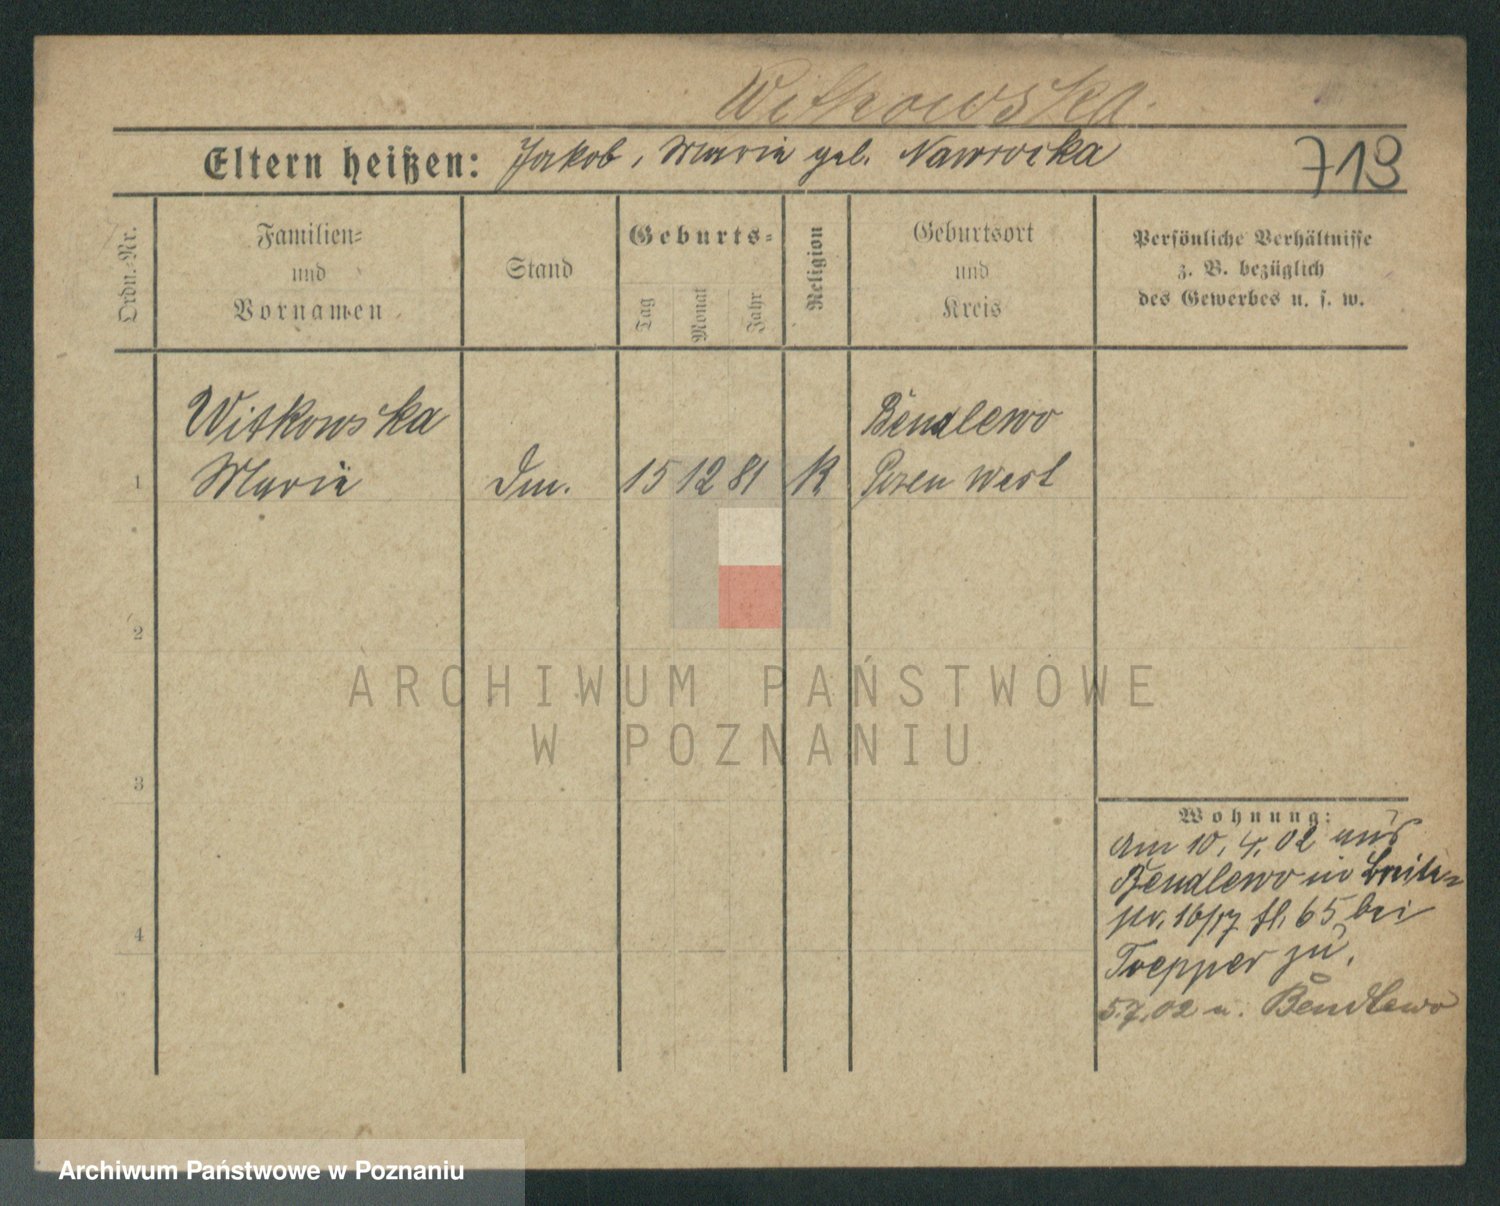 Witkowska.
Eltern heißen: Jakob, Marie geb. Nawrocka
719
Ordn.-Nr.
Familien-
und
Vornamen
Stand
Geburts-
Tag
Monat
Jahr
Religion
Geburtsort
und
Kreis
Persönliche Verhältnisse
z. B. bezüglich
des Gewerbes u. s. w.
Witkowska
Bendlewo
1 Marie Dm. 15 12 81 K Posen West
2
3
4
ARCHIWUM PAŃSTWOWE
W POZNANIU
Wohnung:
Am 10.4.02 aus
Bendlewo in Breite-
str. 16/17 fl. 65 bei
Toepper zu.
5.7.02 n. Bendlewo
Archiwum Państwowe w Poznaniu